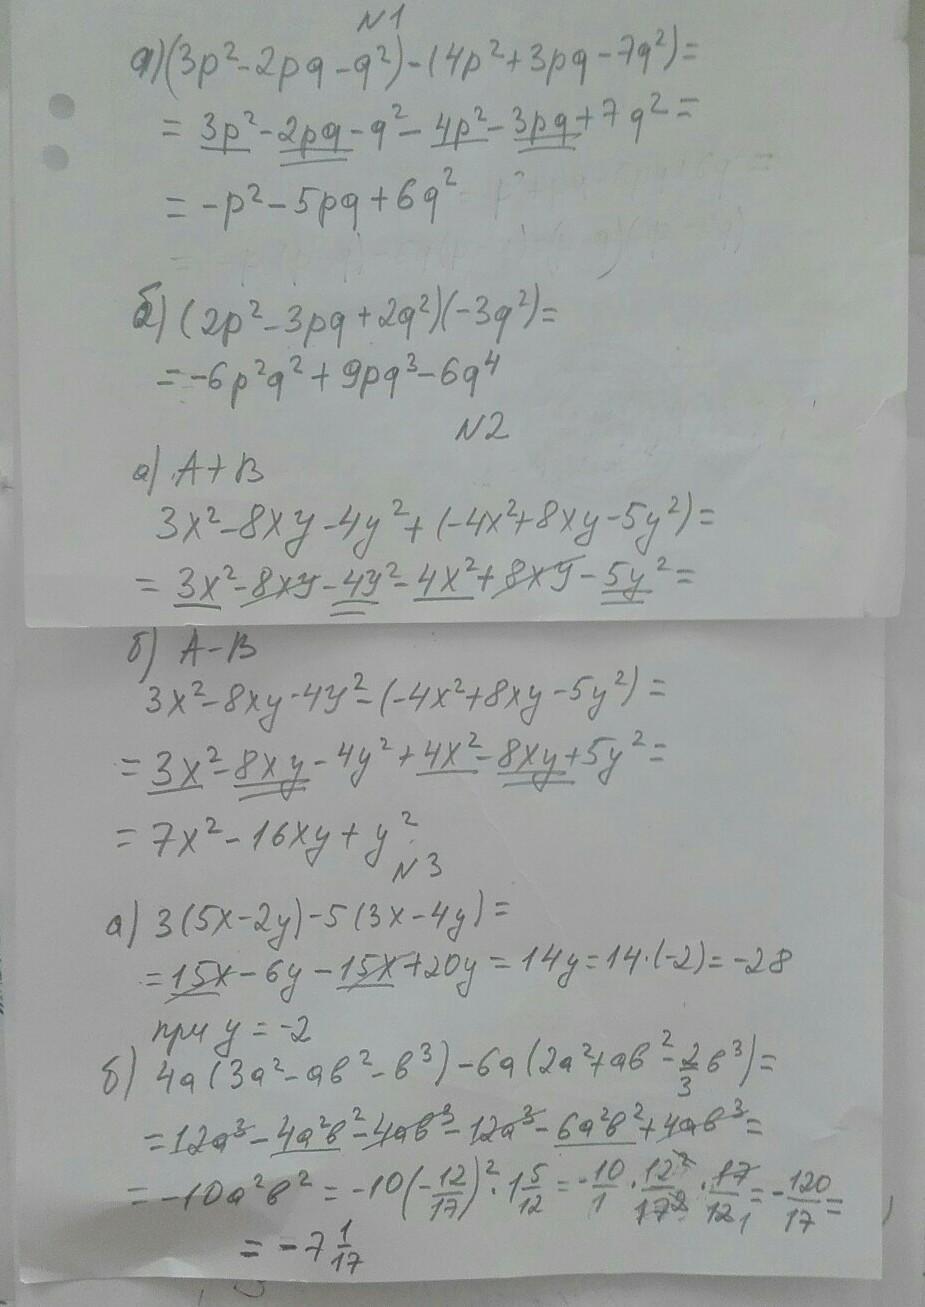 N1
а) (3p² - 2pq - q²) - (4p² + 3pq - 7q²) =
= 3p² - 2pq - q² - 4p² - 3pq + 7q² =
= -p² - 5pq + 6q²
б) (2p² - 3pq + 2q²)(-3q²) =
= -6p²q² + 9pq³ - 6q⁴
N2
а) A+B
3x² - 8xy - 4y² + (-4x² + 8xy - 5y²) =
= 3x² - 8xy - 4y² - 4x² + 8xy - 5y² =
б) A-B
3x² - 8xy - 4y² - (-4x² + 8xy - 5y²) =
= 3x² - 8xy - 4y² + 4x² - 8xy + 5y² =
= 7x² - 16xy + y²
N3
а) 3(5x - 2y) - 5(3x - 4y) =
= 15x - 6y - 15x + 20y = 14y = 14·(-2) = -28
при y = -2
б) 4a(3a² - ab² - b³) - 6a(2a² + ab² - 2/3 b³) =
= 12a³ - 4a²b² - 4ab³ - 12a³ - 6a²b² + 4ab³ =
= -10a²b² = -10(-12/17)² · 1 5/12 = -10/1 · 12²/17² · 17/12 1 = -120/17 =
= -7 1/17